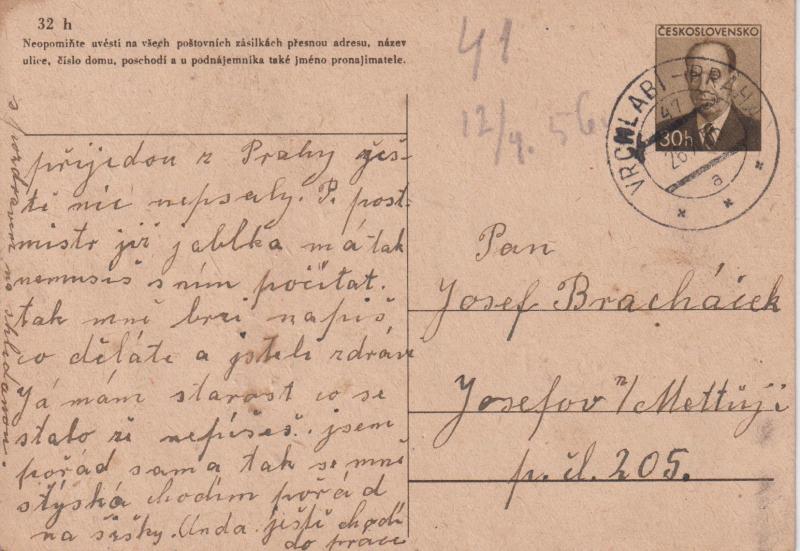 32 h
Neopomiňte uvésti na všech poštovních zásilkách přesnou adresu, název
ulice, číslo domu, poschodí a u podnájemníka také jméno pronajímatele.
41
12/4. 56
ČESKOSLOVENSKO
30h
VRCHLABÍ-PRAHA
41
a
přijedou z Prahy ješ-
tě nic nepsaly. P. post-
mistr již jablka má tak
nemusíš s ním počítat.
tak mně brzi napiš
co děláte a jsteli zdrávi
Já mám starost co se
stalo že nepíšeš. jsem
pořád sama tak se mně
stýská chodím pořád
na šišky. Anda ještě chodí
do práce
s pozdravem na shledanou.
Pan
Josef Bracháček
Josefov n/Mettují
p. čl. 205.